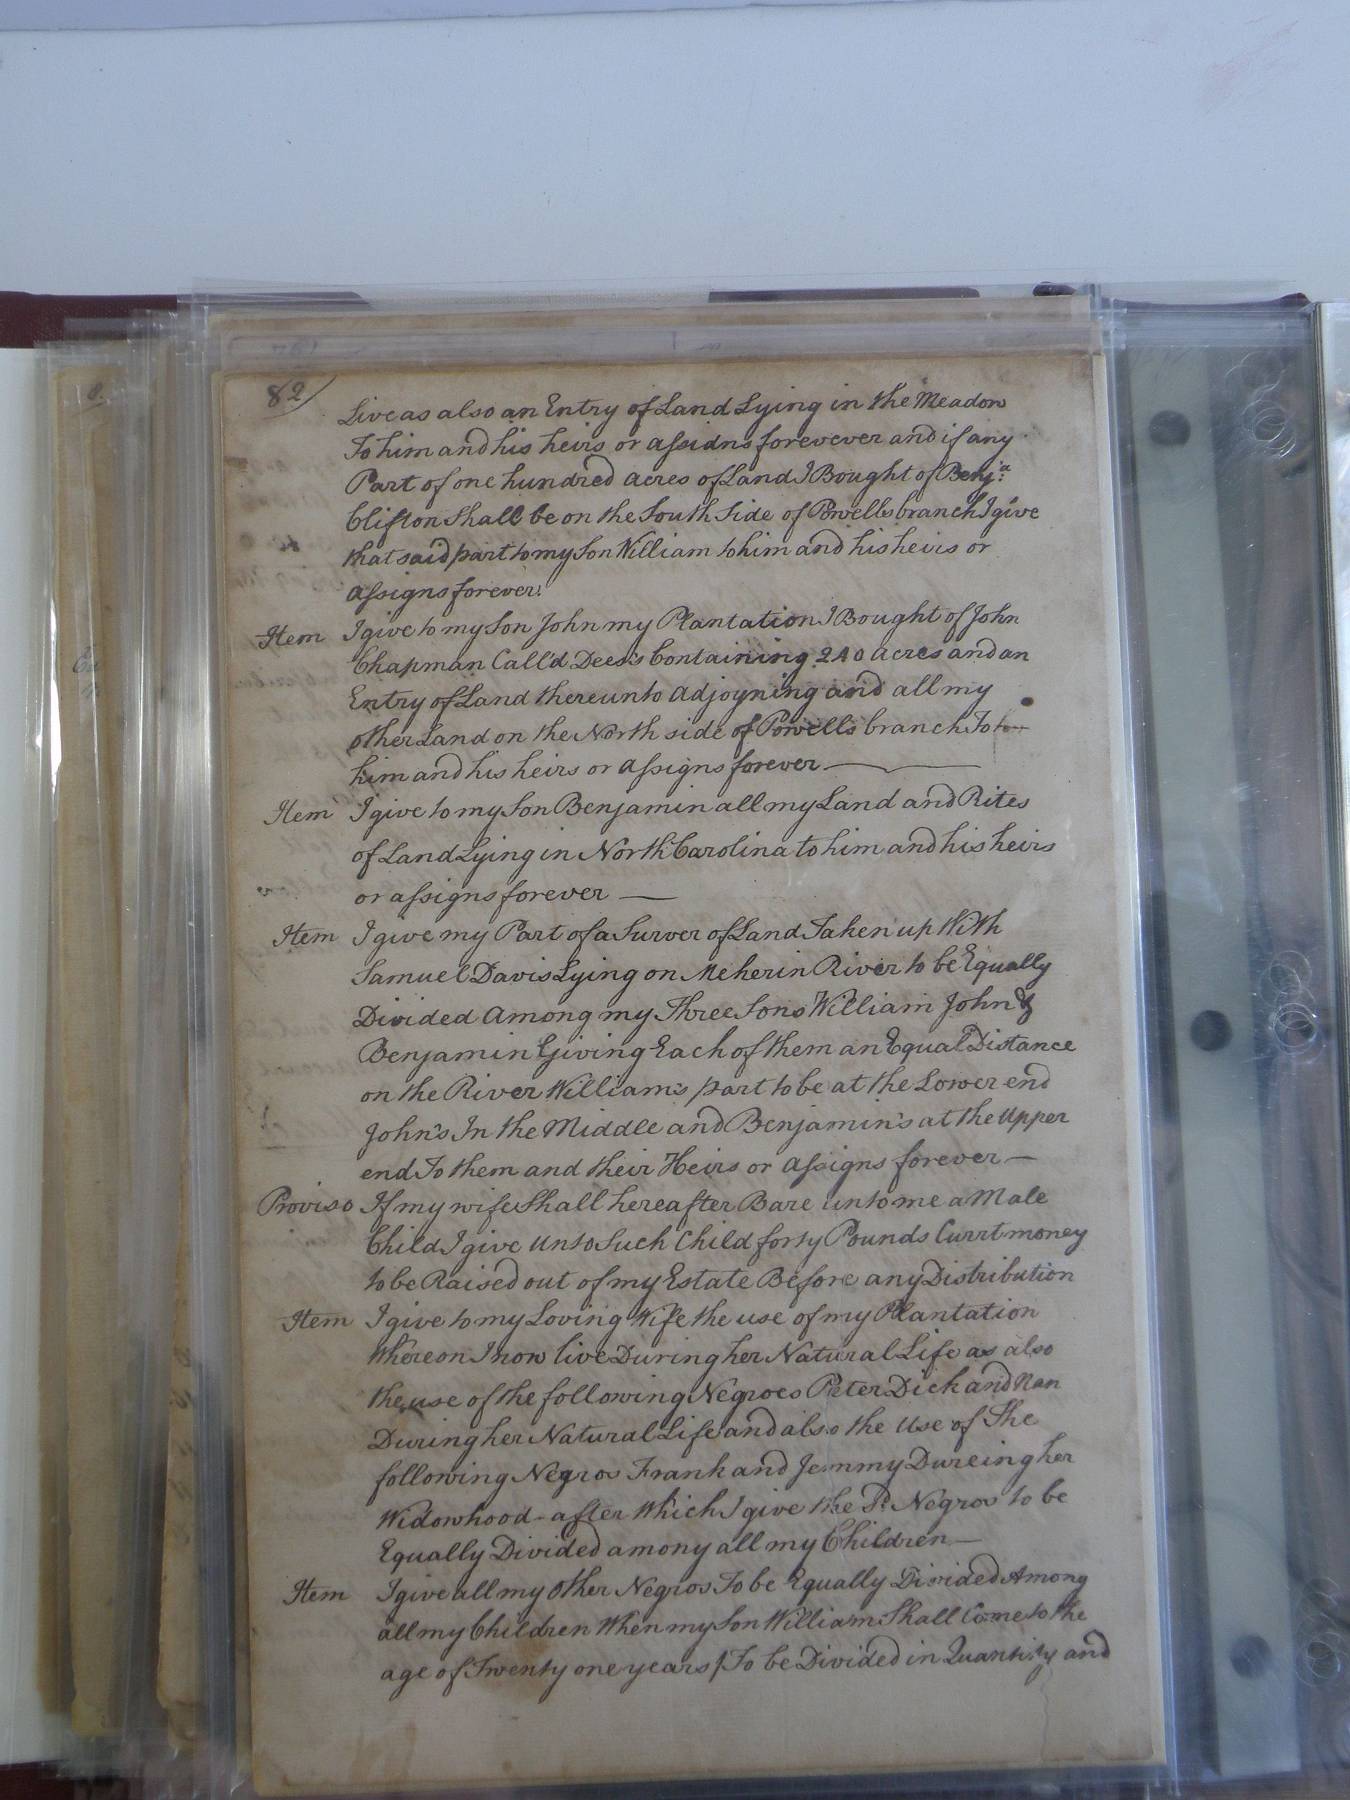 82
Live as also an Entry of Land Lying in the Meadow
To him and his heirs or assidns forevever and if any
Part of one hundred acres of Land I Bought of Benj:a
Clifton Shall be on the South Side of Powells branch I give
that said part to my Son William to him and his heirs or
assigns forever.
Item I give to my Son John my Plantation I Bought of John
Chapman Call'd Dees's Containing 240 acres and an
Entry of Land thereunto adjoyning and all my
other Land on the North side of Powells branch To
him and his heirs or assigns forever
Item I give to my Son Benjamin all my Land and Rites
of Land Lying in North Carolina to him and his heirs
or assigns forever —
Item I give my Part of a Surver of Land Taken up With
Samuel Davis Lying on Meherin River to be Equally
Divided among my Three Sons William John &
Benjamin Giving Each of them an Equal Distance
on the River William's part to be at the Lower end
John's In the Middle and Benjamin's at the Upper
end To them and their Heirs or assigns forever —
Proviso If my wife Shall hereafter Bare unto me a Male
Child I give unto Such Child forty Pounds Currt money
to be Raised out of my Estate Before any Distribution
Item I give to my Loving Wife the use of my Plantation
Whereon I now live During her Natural Life as also
the use of the following Negroes Peter Dick and Nan
During her Natural Life and also the use of The
following Negros Frank and Jemmy Dureing her
Widowhood - after Which I give the Sd. Negros to be
Equally Divided amony all my Children —
Item I give all my Other Negros To be Equally Divided Among
all my Children When my Son William Shall Come to the
age of Twenty one years To be Divided in Quantity and